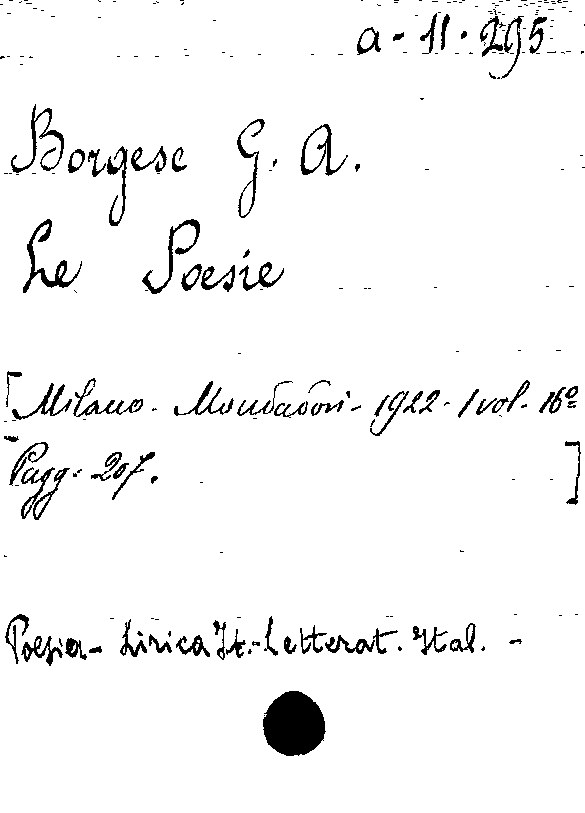 a - 11 . 295
Borgese G. A.
Le Poesie
[Milano - Mondadori - 1922 - 1 vol. 16º
Pagg. 207. ]
Poesia - Lirica It. - Letterat. Ital. -